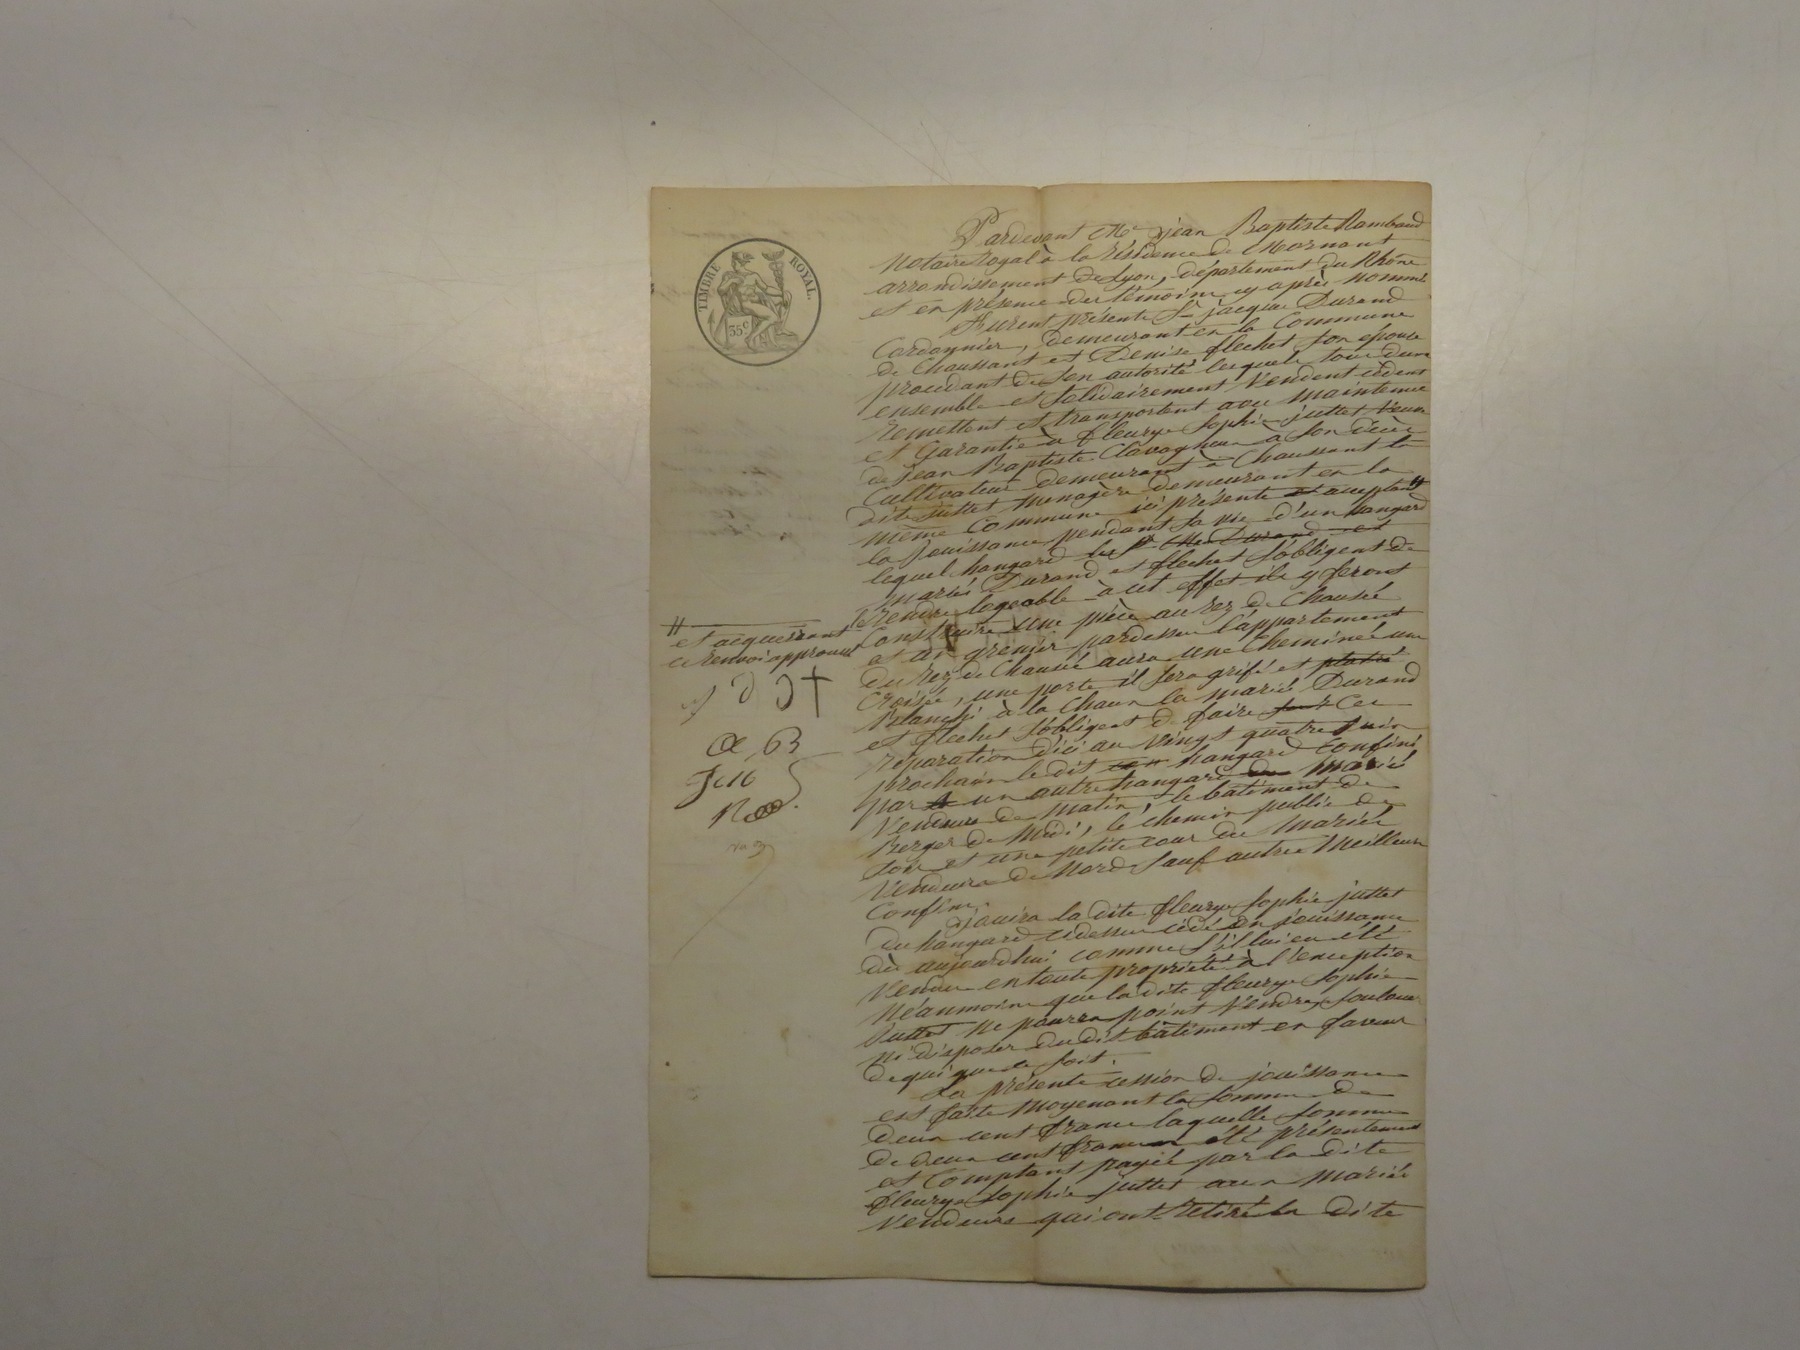 TIMBRE ROYAL.
35 c
Pardevant Me jean Baptiste Rambaud
Notaire royal à la résidence de Mornant
arrondissement de Lyon, département du Rhône
et en présence des témoins cy après nommés
Furent présents Sr jacques Durand
Cordonnier, demeurant en la Commune
de Chaussant et Denise flechet son épouse
procédant de son autorité lesquels tous deux
ensemble et solidairement Vendent cèdent
remettent et transportent avec maintenue
et Garantie à fleurye Sophie juttet Veuve
de Jean Baptiste à son décès
Cultivateur demeurant à Chaussant la
dite juttet Menagère demeurant en la
même Commune ici présente et acceptant //
la Jouissance pendant sa vie d'un hangard
lequel hangard les Durand et
mariés Durand et flechet s'obligent de
rendre logeable à cet effet ils y feront
Construire une pièce au rez de Chaussé
et un grenier pardessus l'appartement
du rez de Chaussé aura une Cheminée une
Croisée, une porte il sera grifé et platré
Blanchi à la Chaux les mariés Durand
et flechet s'obligent de faire Ces
réparations d'ici au Vingt quatre juin
prochain le dit hangard Confiné
par un autre hangard des mariés
Vendeurs de matin, le batiment de
Berger de Midi, le chemin public de
Soir et une petite cour des mariés
Vendeurs de Nord sauf autres Meilleurs
Confins.
Jouira la dite fleurye Sophie juttet
du hangard cidessus cédé en jouissance
dès aujourdhui comme s'il lui eu été
Vendu en toute propriété à l'exception
Néanmoins que la dite fleurye Sophie
Juttet ne pourra point Vendre, soulouer
ni disposer du dit bâtiment en faveur
de qui que ce soit.
La présente cession de jouissance
est faite Moyenant la somme de
deux cent francs laquelle somme
de deux cent francs a été présentement
et Comptant payée par la dite
fleurye Sophie juttet aux mariés
Vendeurs qui ont retiré la dite
// et acquerrant
ce renvoi approuvé